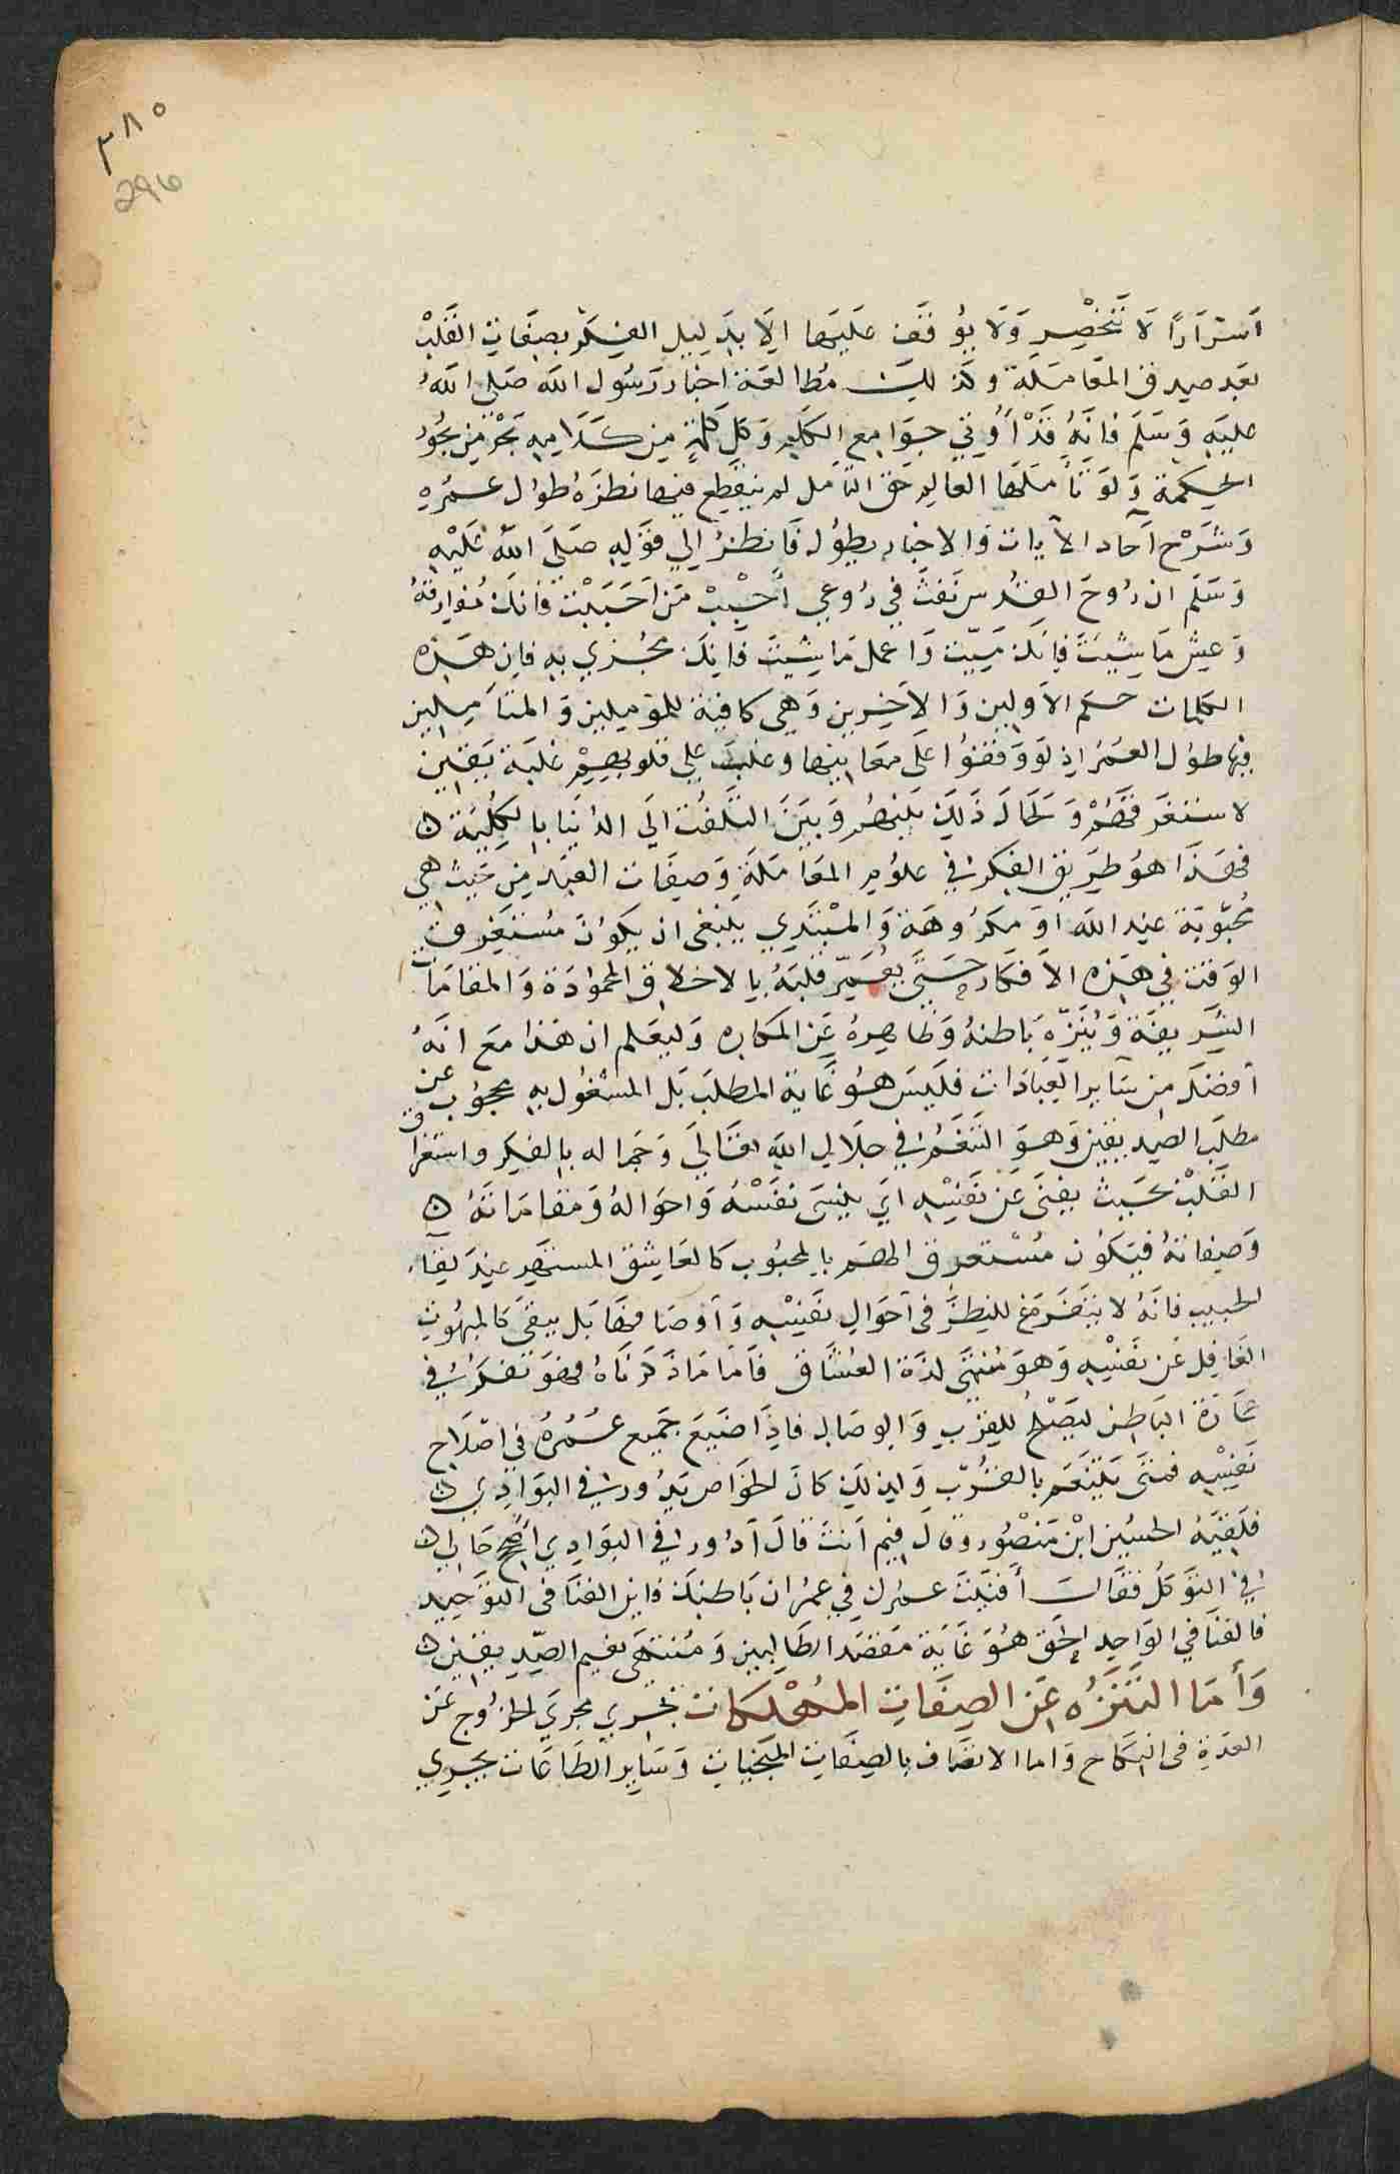 ٣٨٥
296
أسْرَارًا لَا تَنْحَصِر وَلَا يُوقَف عَلَيْهَا الَّا بِدَلِيل الفِكْر بصِفَاتِ القَلْبْ
بعد صدق المعَامَلة وكذلك مُطالعَة اخبار رَسُول الله صَلى اللهُ
عليه وَسَلم فانهُ قَدْ أُوتي جوَامع الكلم وَكل كلمةٍ مِن كلَامِه بَحْر مِن بحُور
الحكمة وَلَو تأملهَا العالِم حَق التأمل لم ينقطِع فيها نظرَهُ طوُل عمُرِه
وَشرْح آحاد الآيات وَالاخبار يطوُل فَانظرْ الي قوْلِهِ صَلَى اللهُ عَليْهِ
وَسَلم ان رُوحَ القدُس نَفثَ فِي رُوعِي أَحْبِبْ مَن أحبَبْتَ فَانك مُفارِقهُ
وَعِش مَا شِيتَ فانك مَيّت وَاعمل مَا شيتَ فانك مجُزي بهِ فان هَذِه
الكلمات حكم الاولين وَالاخِرين وَهي كافية للمومِلين وَالمتأَمِلين
فِيهَا طوُل العمُر اذ لو وَقفوُا عَلَى معَانِيها وغلبَت علي قلوبهِم غلبَة يَقين
لاستغرَقهُمْ وَلحَال ذَلِكَ بَيْنهُم وَبَيْنَ التَلفُت الَى الدُنيَا بِالكُلِيّة ۞
فَهَذا هُو طَرِيق الفِكر فِي علوُم المعَامَلةِ وَصِفَات العَبد مِن حَيثُ هِي
مُحبُوبَة عِند الله اَوْ مَكرُوهَة وَالمْبتَدِي يَنبَغي ان يكوُن مُستغرق
الوَقت فِي هَذِه الاَفكار حَتَّى يُعَمِّر قَلبَهُ بِالاخلاقِ المحموُدَة وَالمقامَات
الشَرِيفة وَيُنَزِّه بَاطنهُ وَظاهِرهُ عَن المكاره وَليعَلم ان هَذا مَع انهُ
أفضَل مِن سَاير العِبَادات فلَيسَ هُو غَاية المطلَب بَل المشغُول بِهِ محجُوب عن
مطلَب الصِديقِين وَهوَ التَنَعُم فِي جلَالِ اللهِ تعَالى وَجمَاله بالفِكر واستغراق
القَلبْ بحَيث يفنَى عَن نَفسِه اي يَنسَى نفسْهُ وَاحوَالهُ وَمقامَاتهُ ۞
وَصِفاتهُ فيَكوُن مُسْتغرق الهَم بِالمحبُوب كَالعاشِق المستهتر عِند لِقاء
الحبيب فانهُ لا يتفَرَغ للنظَر فى أحوَالِ نَفسِه وَأَوصَافهَا بَل يبقى كَالمبهُوتِ
الغَافِل عَن نَفسِه وَهوَ مُنتهَى لذة العُشاق فَأمَا مَا ذكَرنَاهُ فهُوَ تفكرُ فِي
عَمَارَة البَاطِن ليَصْلحُ للقرْب وَالوِصَال فاذَا ضَيعَ جَميع عُمُرهُ فِي اصْلاح
نَفسِه فمتى يَتنَعَم بالقُرْب وَلذلك كَانَ الخواص يَدُور فِي البَوَادِي ۞
فلَقيَهُ الحسين ابْن مَنصُور وقال فيم أَنت قالَ أدُور فِي البَوَادِي أصلح حَالي ۞
فِي التوَكل فقَال أفنَيتَ عمُرك فِي عمرَان بَاطنك فاين الفنَا فى التوَحِيد
فالفنَا فِي الوَاحِد الحَق هُوَ غَاية مَقصد الطَالبِين وَمنتهَى نعيم الصِّدِيقين ۞
وَأمَا التَنَزُه عَن الصِفَاتِ المُهْلكَات فَيَجرِي مجرَي الخرُوج عَن
العدَةِ فى النِكاح وَاما الاتصَاف بِالصِفات المُنجِياتِ وَسَاير الطَاعَات فيجرِي